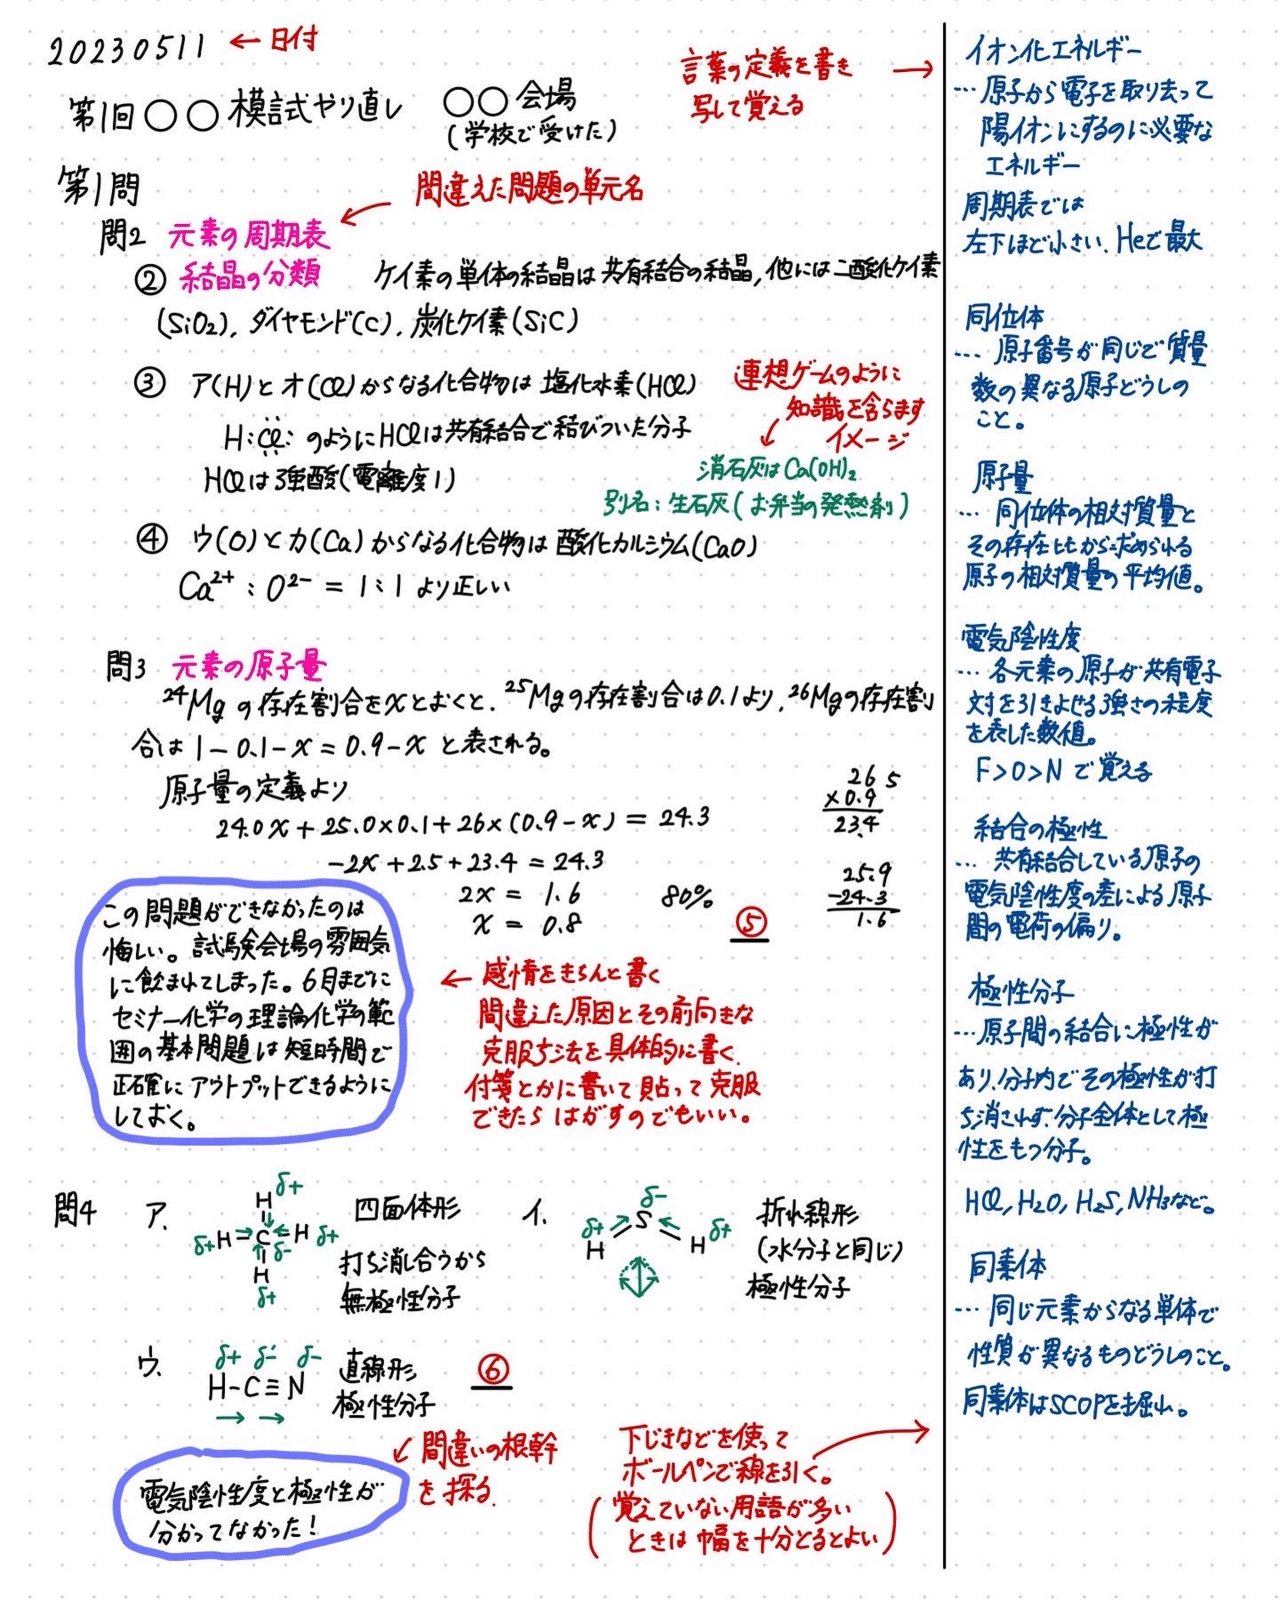 20230511 ← 日付
第1回○○模試やり直し ○○会場
(学校で受けた)
言葉の定義を書き →
写して覚える
第1問
間違えた問題の単元名
問2 元素の周期表
② 結晶の分類 ケイ素の単体の結晶は共有結合の結晶,他には二酸化ケイ素
(SiO2), ダイヤモンド(C), 炭化ケイ素(SiC)
③ ア(H)とオ(Cl)からなる化合物は 塩化水素(HCl)
H:Cl: のようにHClは共有結合で結びついた分子
HClは強酸(電離度1)
連想ゲームのように
知識を含らます
イメージ
消石灰はCa(OH)2
別名:生石灰(お弁当の発熱剤)
④ ウ(O)とカ(Ca)からなる化合物は 酸化カルシウム(CaO)
Ca2+ : O2- = 1:1 より正しい
問3 元素の原子量
24Mgの存在割合をxとおくと,25Mgの存在割合は0.1より,26Mgの存在割
合は 1-0.1-x=0.9-x と表される。
原子量の定義より
24.0x+25.0×0.1+26×(0.9-x)=24.3
-2x+2.5+23.4=24.3
2x=1.6 80%
x=0.8 ⑤
26 5
×0.9
23.4
25.9
-24.3
1.6
この問題ができなかったのは
悔しい。試験会場の雰囲気
に飲まれてしまった。6月までに
セミナー化学の理論化学の範
囲の基本問題は短時間で
正確にアウトプットできるように
しておく。
← 感情をきちんと書く
間違えた原因とその前向きな
克服方法を具体的に書く.
付箋とかに書いて貼って克服
できたらはがすのでもいい。
問4 ア.
H δ+
δ+ H→C←H δ+
δ-
H
δ+
四面体形
打ち消し合うから
無極性分子
イ.
δ-
δ+ S δ+
H H
折れ線形
(水分子と同じ)
極性分子
ウ.
δ+ δ- δ-
H-C≡N
→ →
直線形
極性分子
⑥
間違いの根幹
を探る.
電気陰性度と極性が
分かってなかった!
下じきなどを使って
ボールペンで線を引く。
(覚えていない用語が多い
ときは幅を十分とるとよい)
イオン化エネルギー
… 原子から電子を取り去って
陽イオンにするのに必要な
エネルギー
周期表では
左下ほど小さい. Heで最大
同位体
… 原子番号が同じで質量
数の異なる原子どうしの
こと。
原子量
… 同位体の相対質量と
その存在比から求められる
原子の相対質量の平均値。
電気陰性度
… 各元素の原子が共有電子
対を引きよせる強さの程度
を表した数値。
F>O>N で覚える
結合の極性
… 共有結合している原子の
電気陰性度の差による原子
間の電荷の偏り。
極性分子
… 原子間の結合に極性が
あり,分子内でその極性が打
ち消されず,分子全体として極
性をもつ分子。
HCl, H2O, H2S, NH3など。
同素体
… 同じ元素からなる単体で
性質が異なるものどうしのこと。
同素体はSCOPを掘れ。